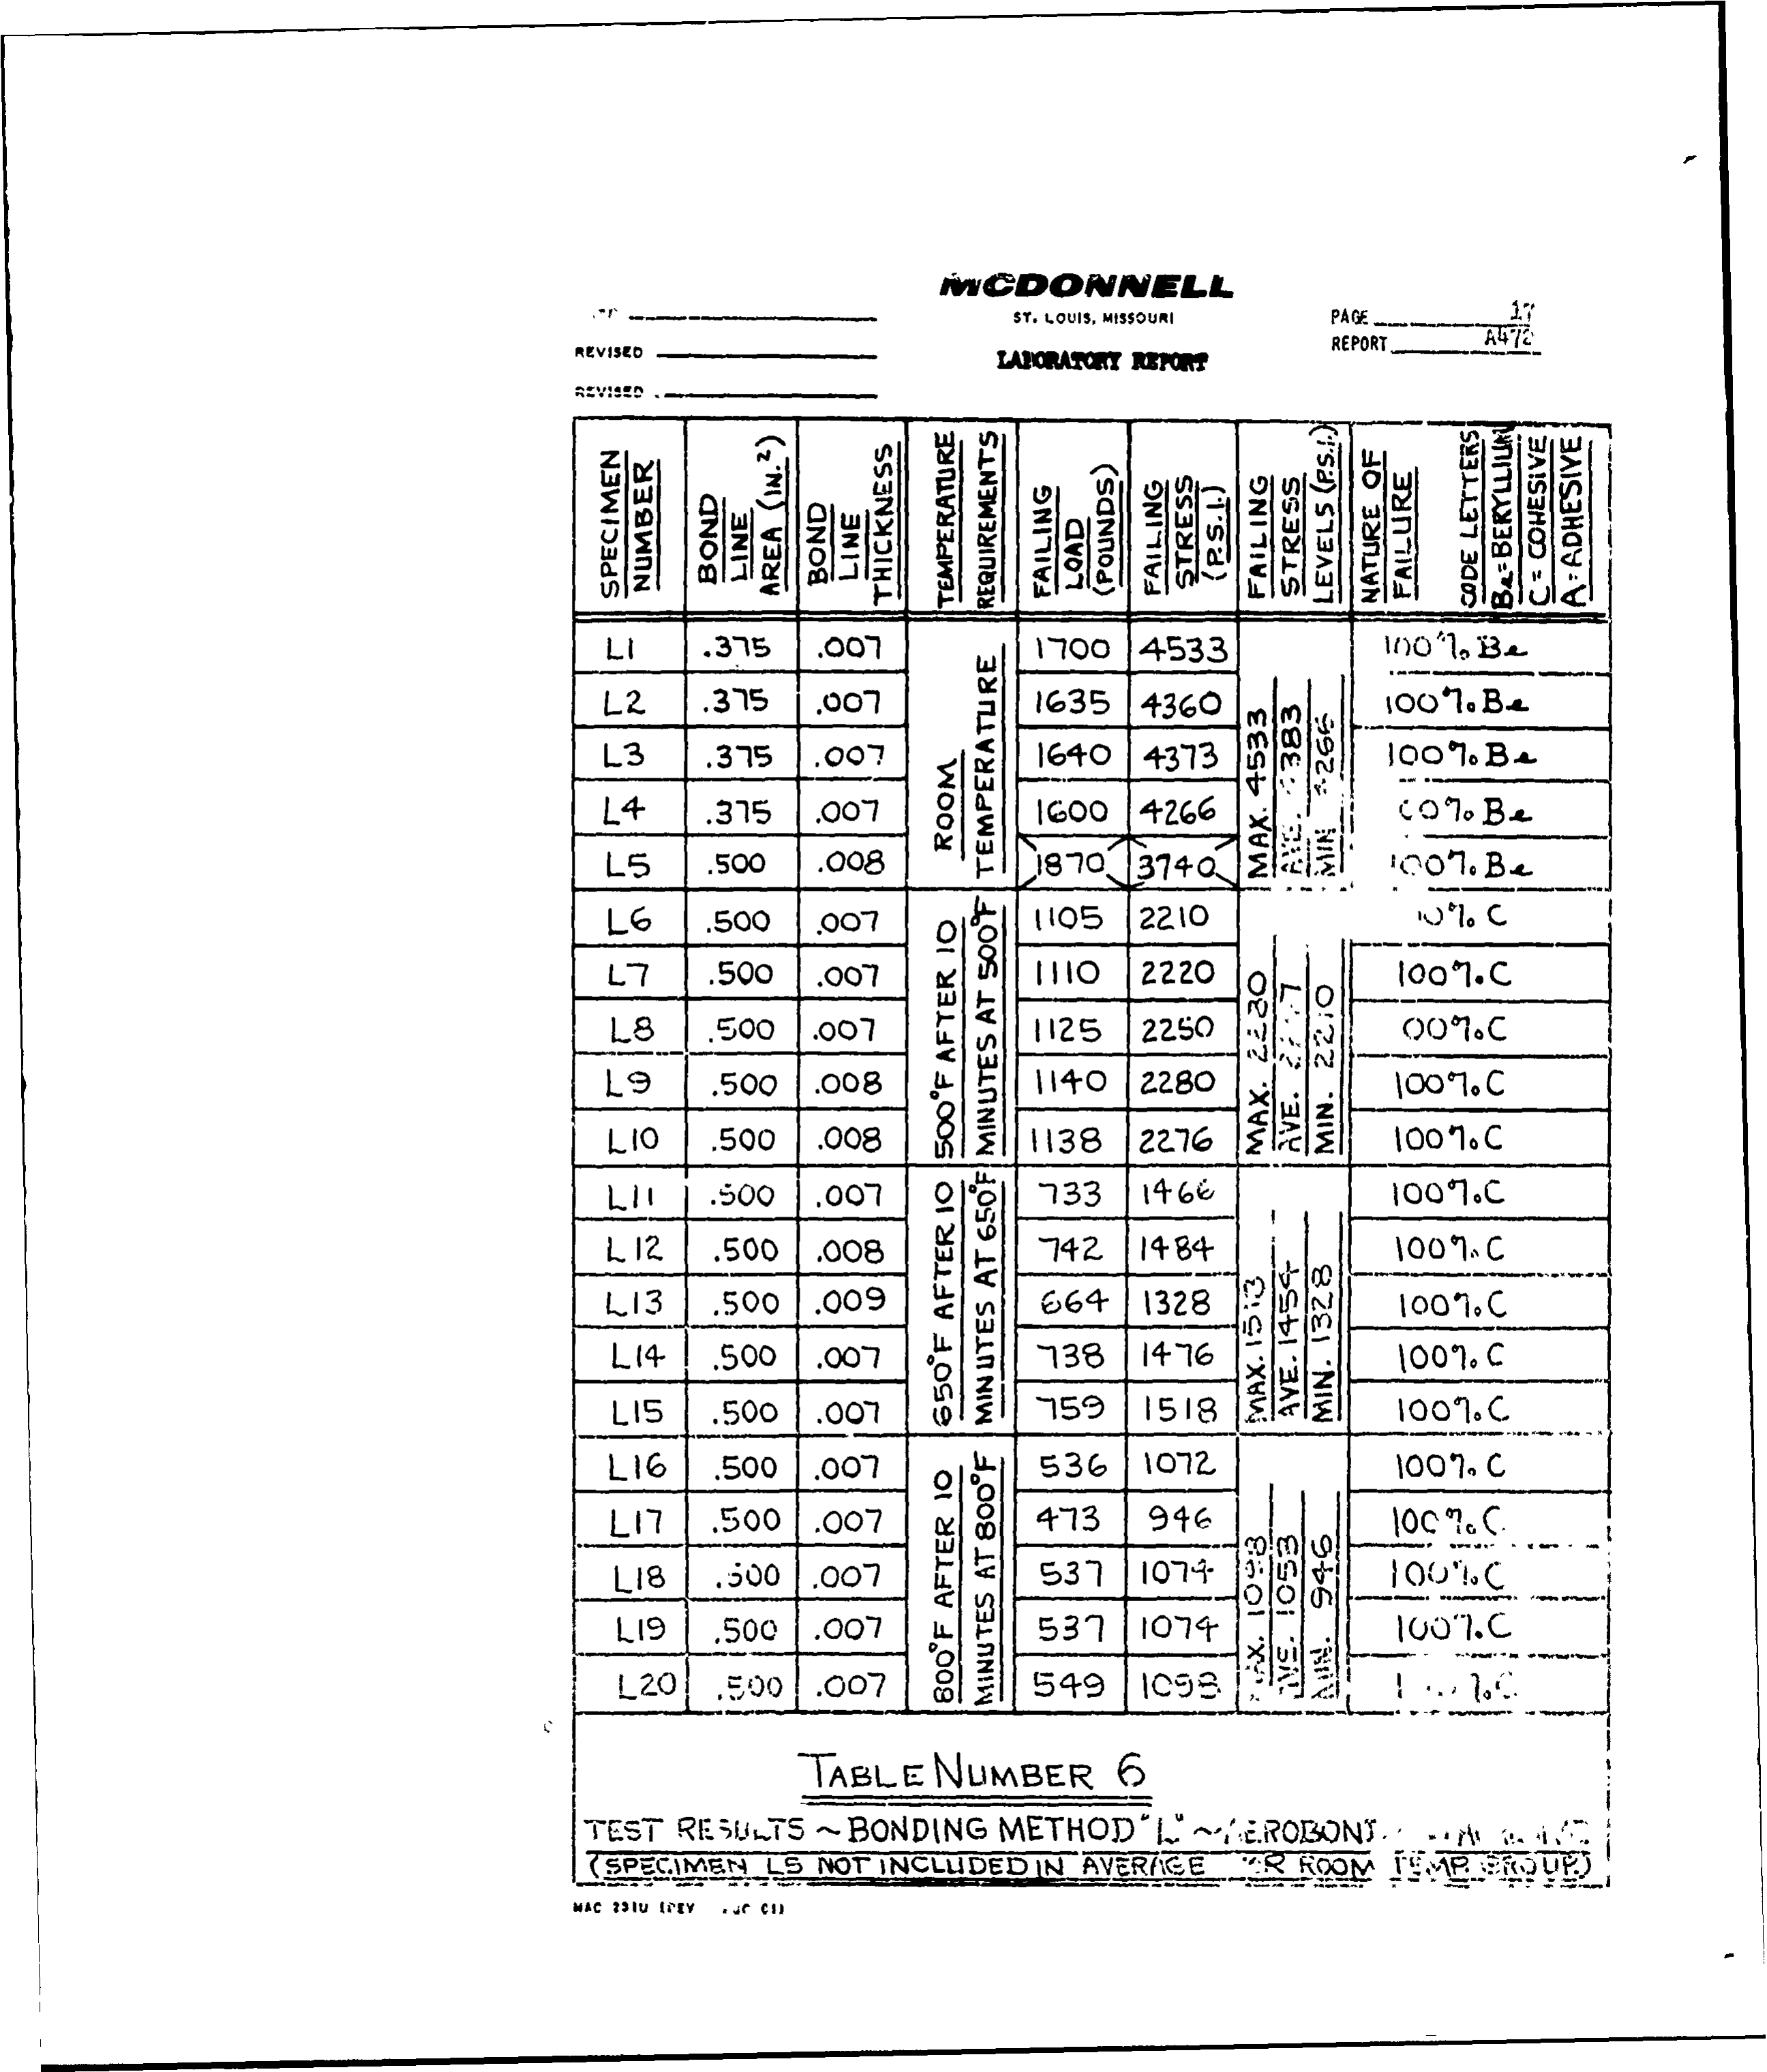 MCDONNELL
ST. LOUIS, MISSOURI
LABORATORY REPORT
REVISED
REVISED
PAGE 17
REPORT A472
SPECIMEN NUMBER | BOND LINE AREA (IN.²) | BOND LINE THICKNESS | TEMPERATURE REQUIREMENTS | FAILING LOAD (POUNDS) | FAILING STRESS (P.S.I.) | FAILING STRESS LEVELS (P.S.I.) | NATURE OF FAILURE CODE LETTERS Be=BERYLLIUM C=COHESIVE A=ADHESIVE
ROOM TEMPERATURE
MAX. 4533
AVE. 383
MIN 266
L1 .375 .007 1700 4533 100% Be
L2 .375 .007 1635 4360 100% Be
L3 .375 .007 1640 4373 100% Be
L4 .375 .007 1600 4266 00% Be
L5 .500 .008 1870 3740 100% Be
500°F AFTER 10 MINUTES AT 500°F
MAX. 2280
AVE.
MIN. 2210
L6 .500 .007 1105 2210 0% C
L7 .500 .007 1110 2220 100% C
L8 .500 .007 1125 2250 00% C
L9 .500 .008 1140 2280 100% C
L10 .500 .008 1138 2276 100% C
650°F AFTER 10 MINUTES AT 650°F
MAX.
AVE. 1454
MIN. 1328
L11 .500 .007 733 1466 100% C
L12 .500 .008 742 1484 100% C
L13 .500 .009 664 1328 100% C
L14 .500 .007 738 1476 100% C
L15 .500 .007 759 1518 100% C
800°F AFTER 10 MINUTES AT 800°F
MAX. 1098
AVE. 1053
MIN. 946
L16 .500 .007 536 1072 100% C
L17 .500 .007 473 946 100% C
L18 .500 .007 537 1074 100% C
L19 .500 .007 537 1074 100% C
L20 .500 .007 549 1098 % C
TABLE NUMBER 6
TEST RESULTS ~ BONDING METHOD "L" ~
(SPECIMEN L5 NOT INCLUDED IN AVERAGE ROOM TEMP. GROUP.)
MAC 231U (REV